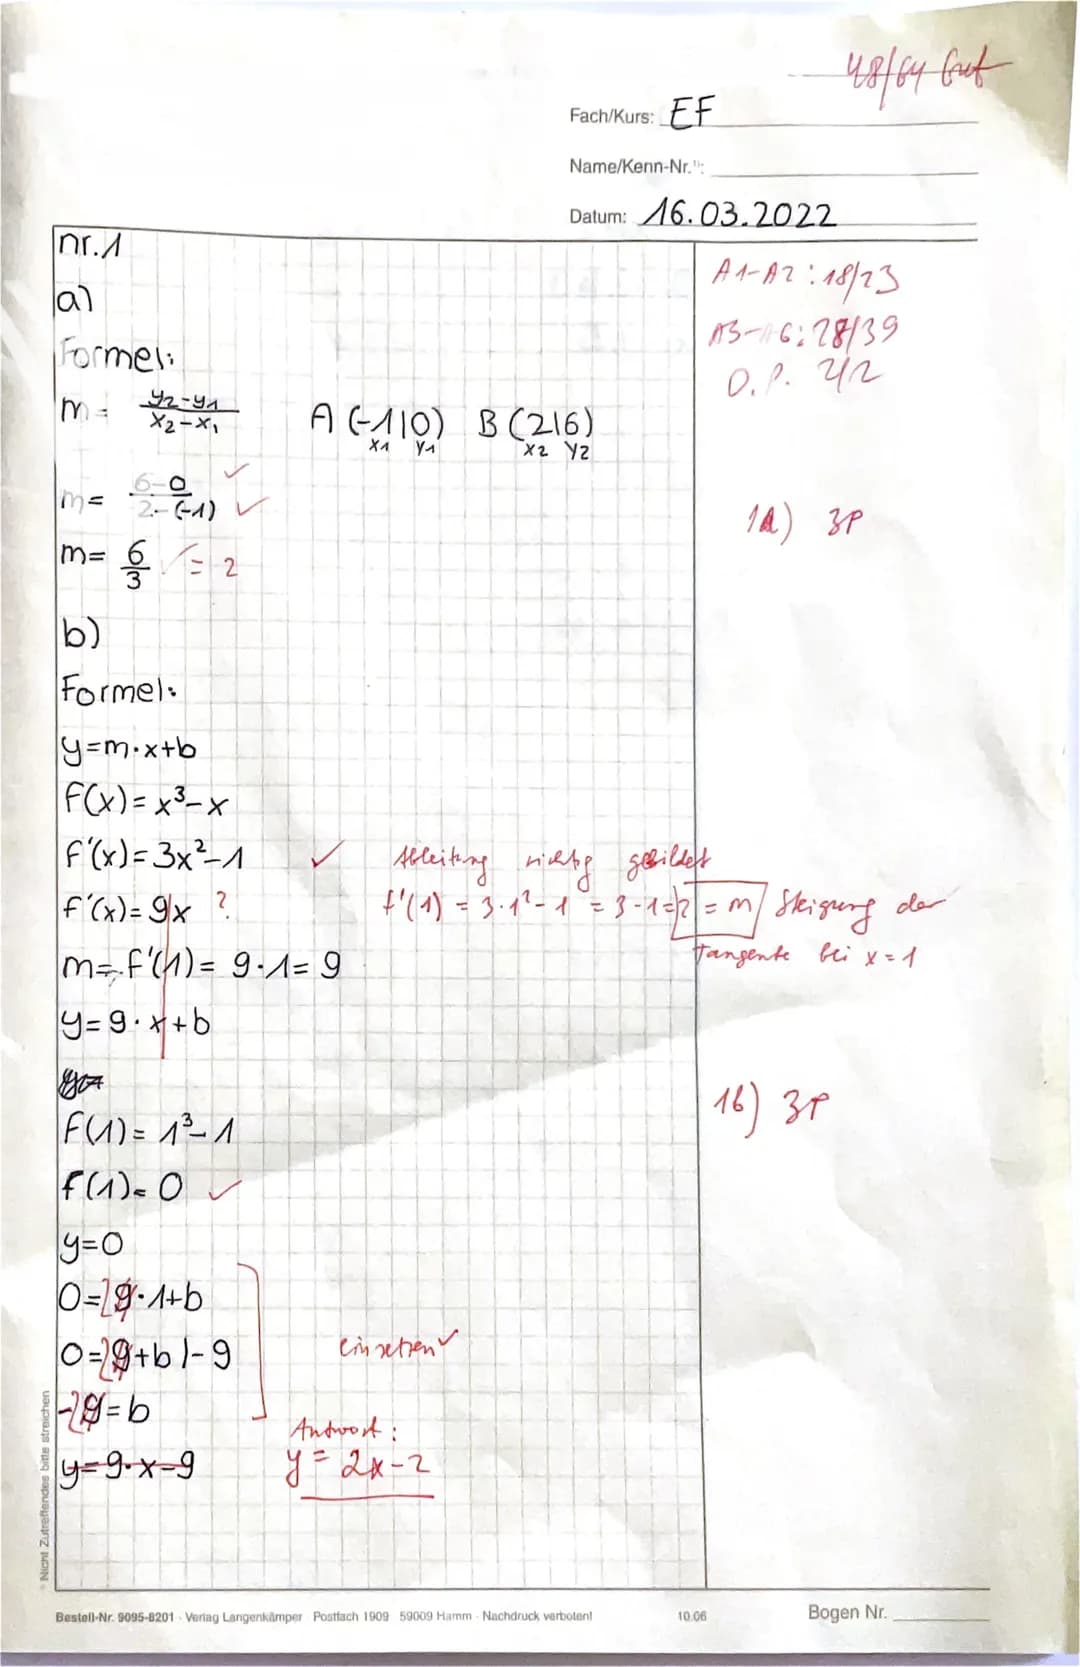 48/64 Gut
Fach/Kurs: EF
Name/Kenn-Nr.¹⁾:
Datum: 16.03.2022
nr.1
A1-A2: 18/23
a)
A3-A6: 28/39
Formel:
O.P. 2/2
m = y2-y1/x2-x1 A (-1|0) B (2|6)
x1 y1 x2 y2
m = 6-0/2-(-1) ✓ ✓
1a) 3P
m = 6/3 ✓ = 2
b)
Formel:
y=m·x+b
f(x)=x³-x
f'(x)=3x²-1 ✓ Ableitung richtig gebildet
f'(x)=9x ? f'(1) = 3·1²-1 = 3-1=2 = m Steigung der
Tangente bei x=1
m=f'(1)=9·1=9
y=9·x+b
1b) 3P
f(1)=1³-1
f(1)=0 ✓
y=0
0=2 9·1+b
0=2 9+b |-9 einsetzen ✓
-2 9=b
Antwort:
y=9·x-9 y = 2x-2
Nicht Zutreffendes bitte streichen
Bestell-Nr. 9095-8201 · Verlag Langenkämper Postfach 1909 59009 Hamm · Nachdruck verboten! 10.06 Bogen Nr.